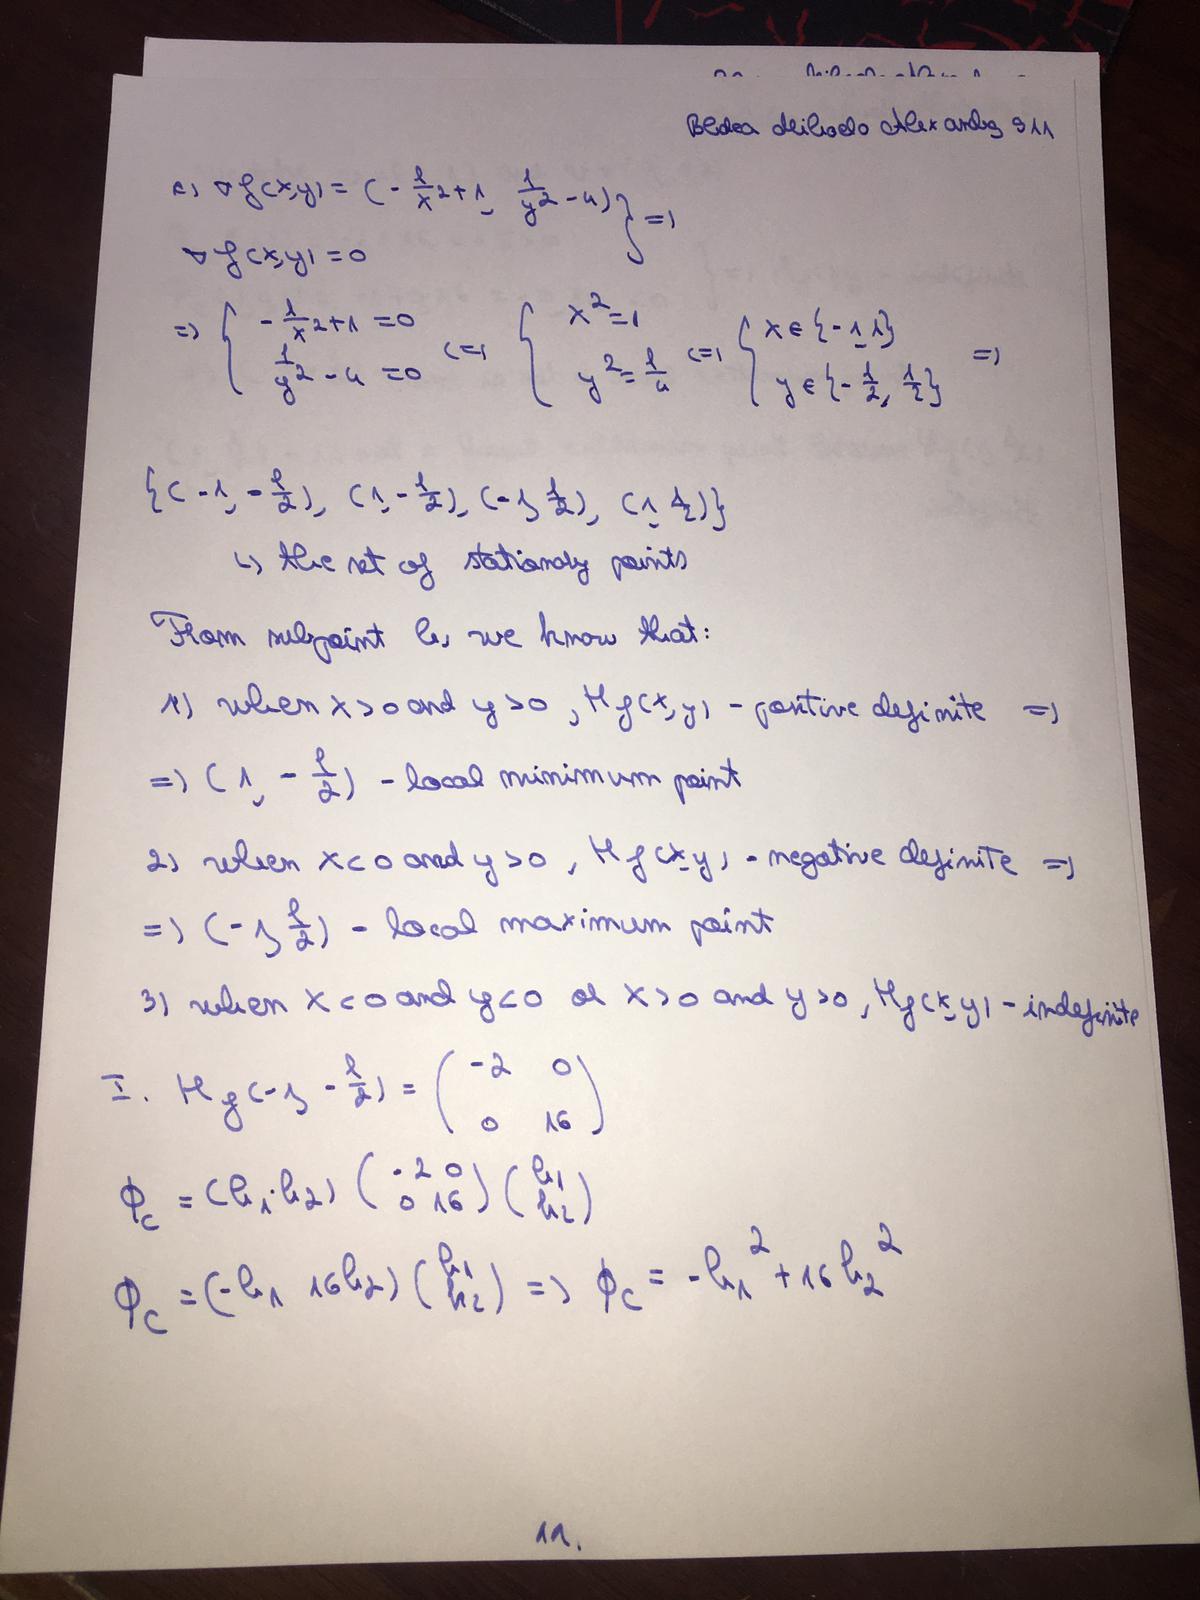 Alexandra 911
c) ∇f(x,y) = (-1/x²+1, 1/y²-4) } =>
∇f(x,y) = 0
=> { -1/x²+1 = 0 <=> { x²=1 <=> { x∈{-1,1} =>
1/y²-4 = 0 y²=1/4 y∈{-1/2, 1/2}
{(-1, -1/2), (1, -1/2), (-1, 1/2), (1, 1/2)}
↳ the set of stationary points
From subpoint b, we know that:
1) when x>0 and y>0, Hf(x,y) - positive definite =>
=> (1, -1/2) - local minimum point
2) when x<0 and y>0, Hf(x,y) - negative definite =>
=> (-1, 1/2) - local maximum point
3) when x<0 and y<0 or x>0 and y>0, Hf(x,y) - indefinite
I. Hf(-1, -1/2) = (-2 0
0 16)
ϕc = (h1 h2) (-2 0 0 16) (h1 h2)
ϕc = (-h1 16h2) (h1 h2) => ϕc = -h1² + 16h2²
11.